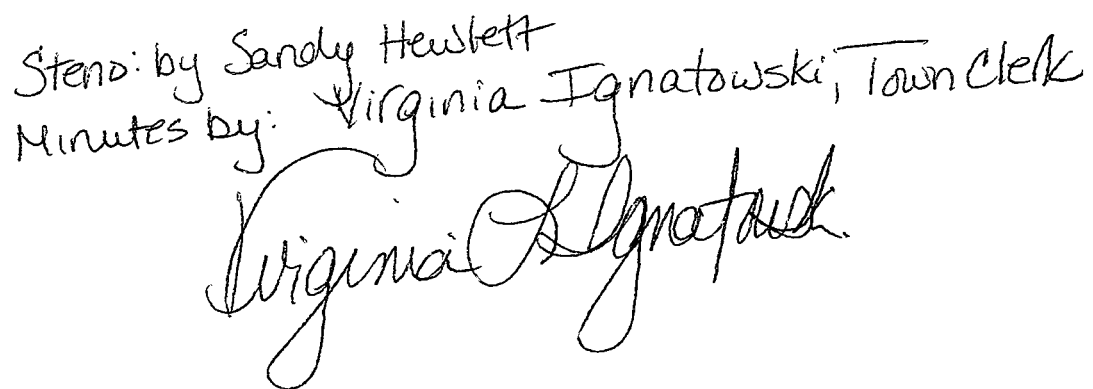 Steno: by Sandy Hewlett
Minutes by: Virginia Ignatowski, Town Clerk
Virginia L Ignatowski